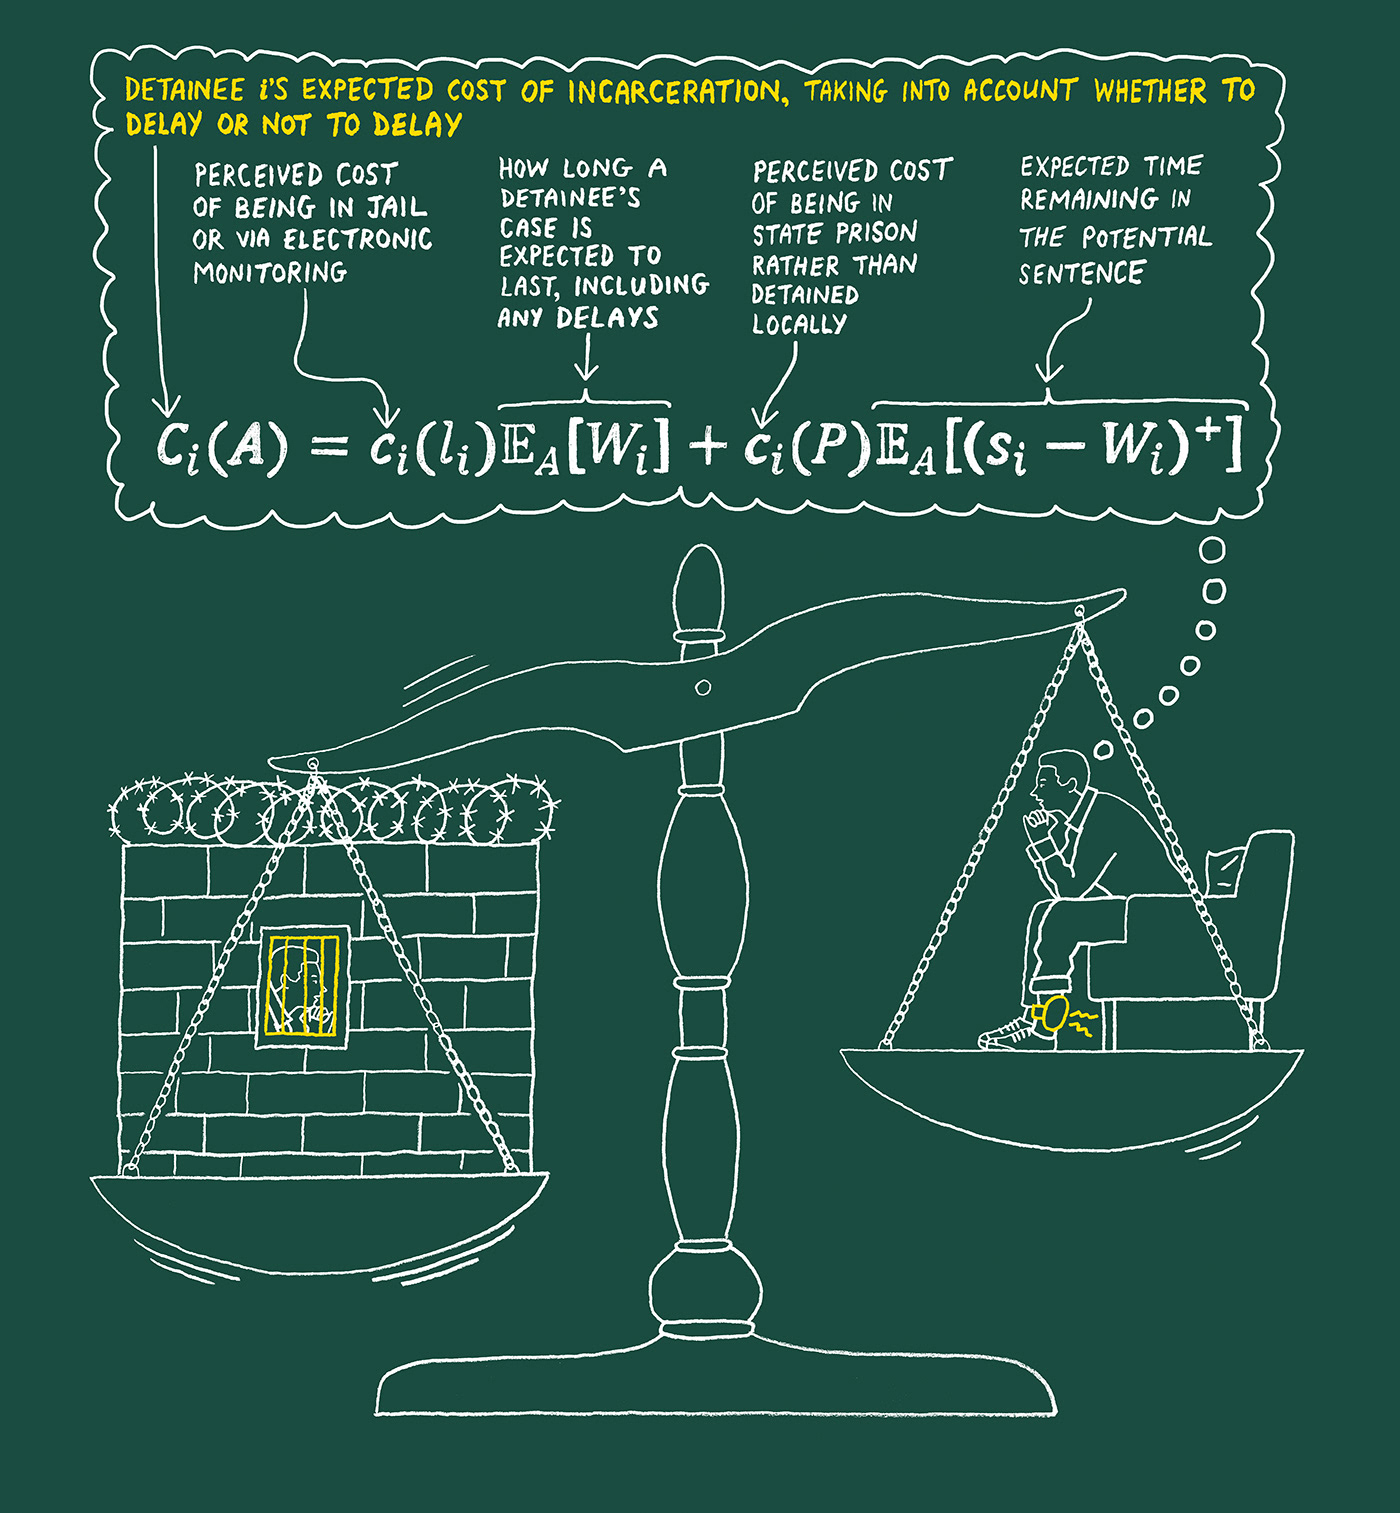 DETAINEE i'S EXPECTED COST OF INCARCERATION, TAKING INTO ACCOUNT WHETHER TO
DELAY OR NOT TO DELAY
PERCEIVED COST
OF BEING IN JAIL
OR VIA ELECTRONIC
MONITORING
HOW LONG A
DETAINEE'S
CASE IS
EXPECTED TO
LAST, INCLUDING
ANY DELAYS
PERCEIVED COST
OF BEING IN
STATE PRISON
RATHER THAN
DETAINED
LOCALLY
EXPECTED TIME
REMAINING IN
THE POTENTIAL
SENTENCE
C_i(A) = c_i(l_i)𝔼_A[W_i] + c_i(P)𝔼_A[(s_i − W_i)^+]